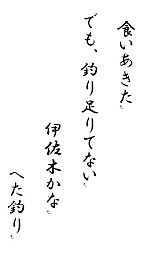 食いあきた
でも、釣り足りてない
伊佐木かな
へた釣り